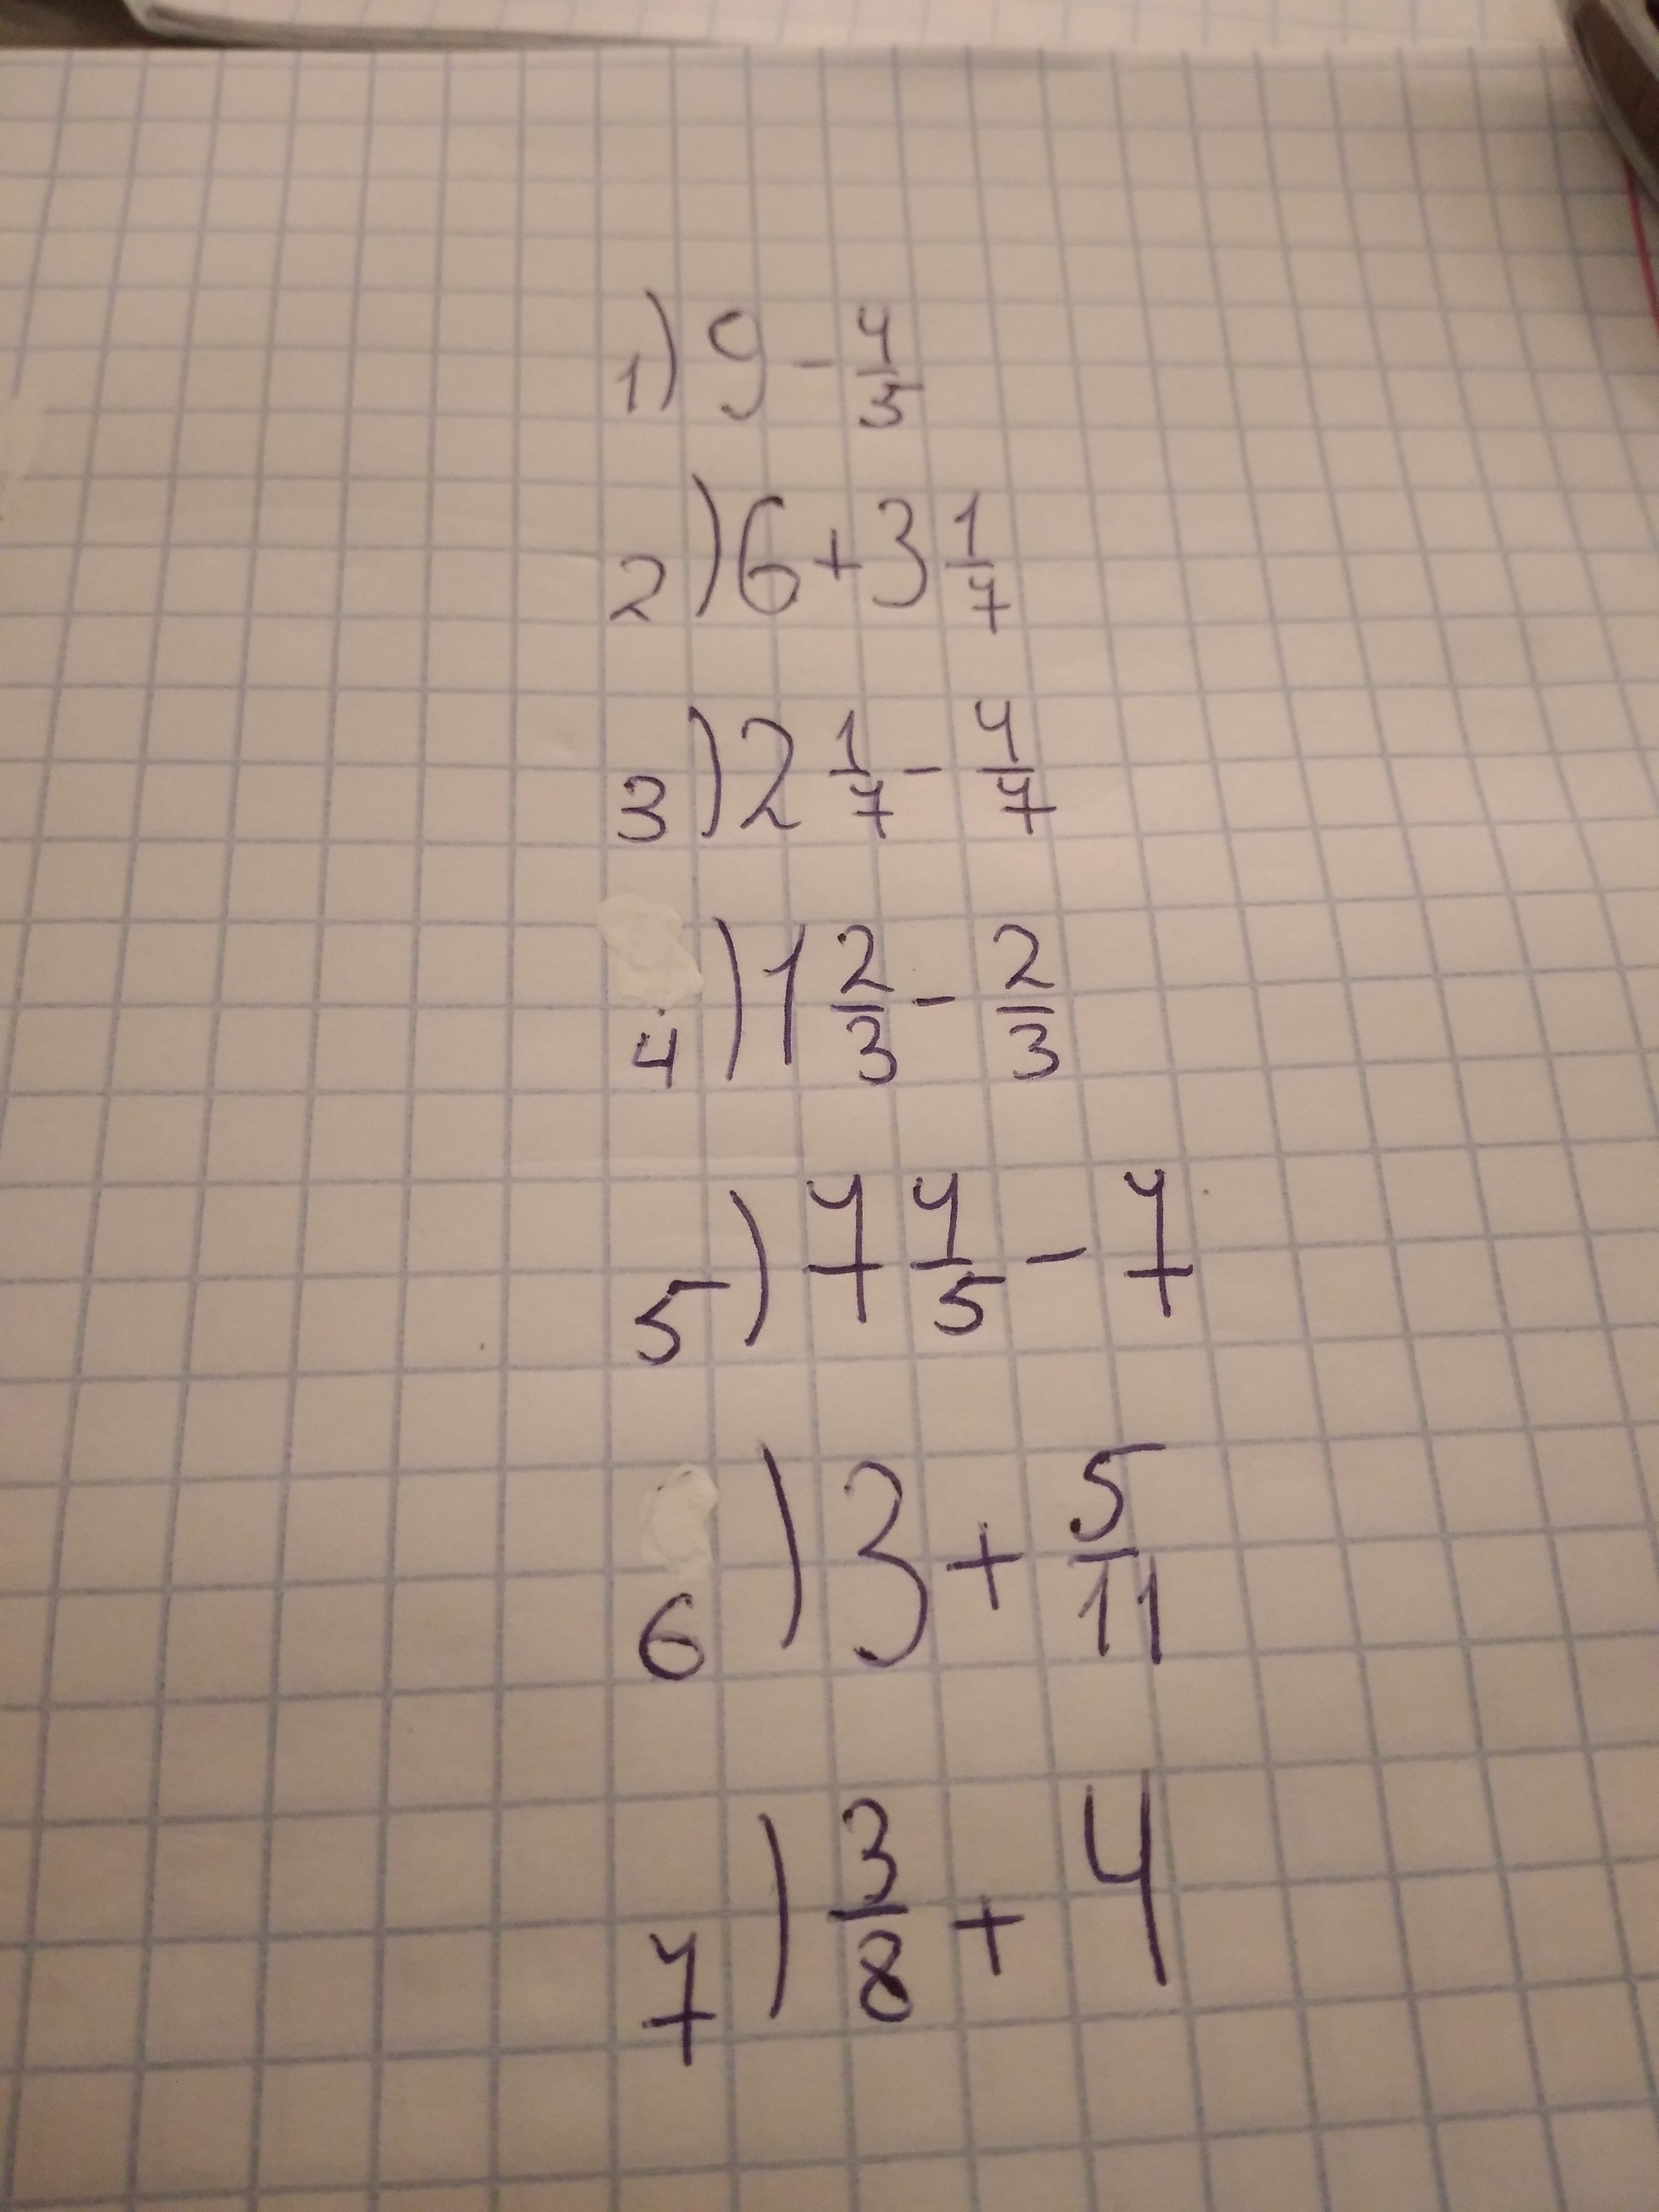 1) 9 - 4/5
2) 6 + 3 1/7
3) 2 1/7 - 4/7
4) 1 2/3 - 2/3
5) 7 4/5 - 7
6) 3 + 5/11
7) 3/8 + 4